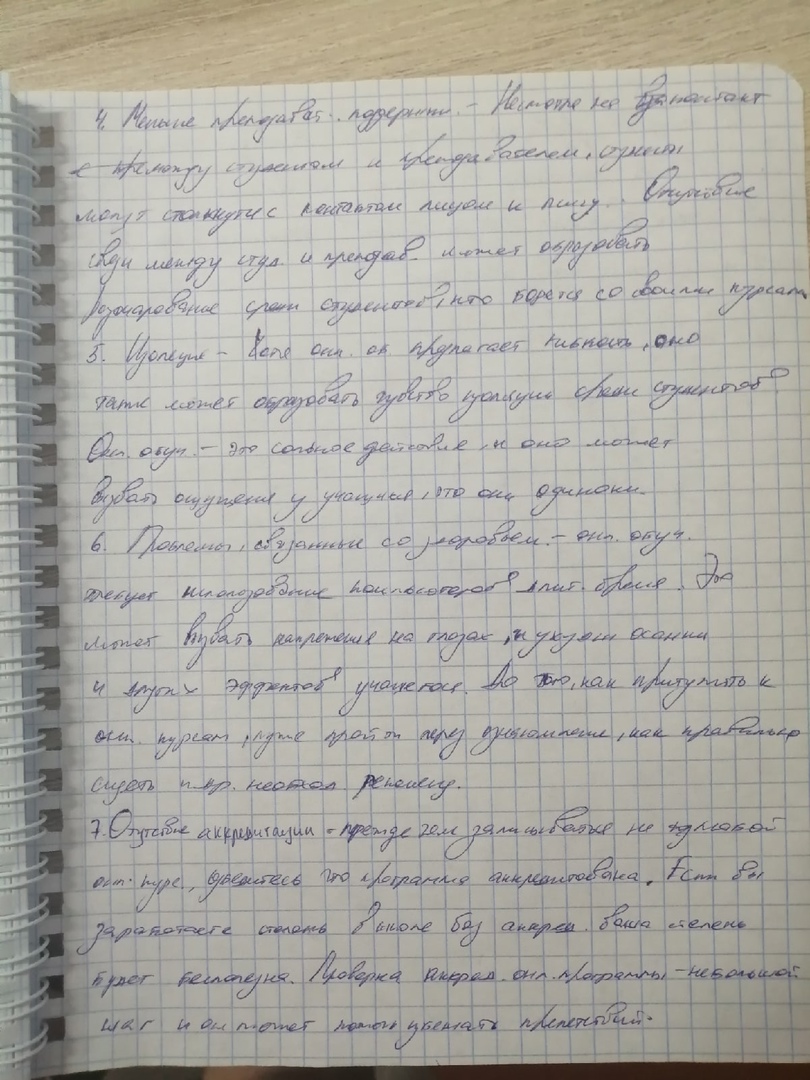 4. Меньше преподават. поддержки. - Несмотря на контакт
между студентом и преподавателем, студенты
могут столкнутся с контактом лицом к лицу. Отсутствие
связи между студ. и преподав. может образовать
разочарование среди студентов, кто борется со своими курсами
5. Изоляция - Хотя онл. об предлагает гибкость, оно
также может образовать чувство изоляции среди студентов
Онл. обуч. - это сольное действие, и оно может
вызвать ощущения у учащихся, что они одиноки.
6. Проблемы, связанные со здоровьем. - онл. обуч.
требует использование компьютеров длит. время. Это
может вызвать напряжения на глазах, осанки
и других эффектов учащегося. До того, как приступить к
онл. курсам, лучше пройти через ознакомление, как правильно
сидеть и др. необход. рекоменд.
7. Отсутствие аккредитации - прежде чем записываться на
онл. курс, убедитесь что программа аккредитована. Если вы
заработаете степень в школе без аккред. ваша степень
будет бесполезна. Проверка аккред. онл. программы - небольшой
шаг и он может помочь избежать препятствий.